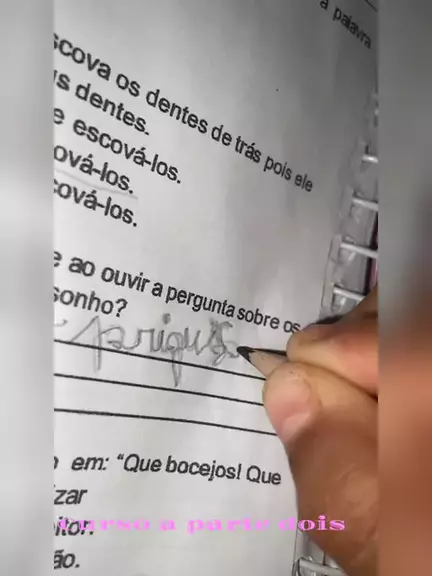 a palavra
scova os dentes de trás pois ele
s dentes.
e escová-los.
ová-los.
cová-los.
e ao ouvir a pergunta sobre os
sonho?
em: "Que bocejos! Que
zar
itor.
ão.
Curso a parte dois